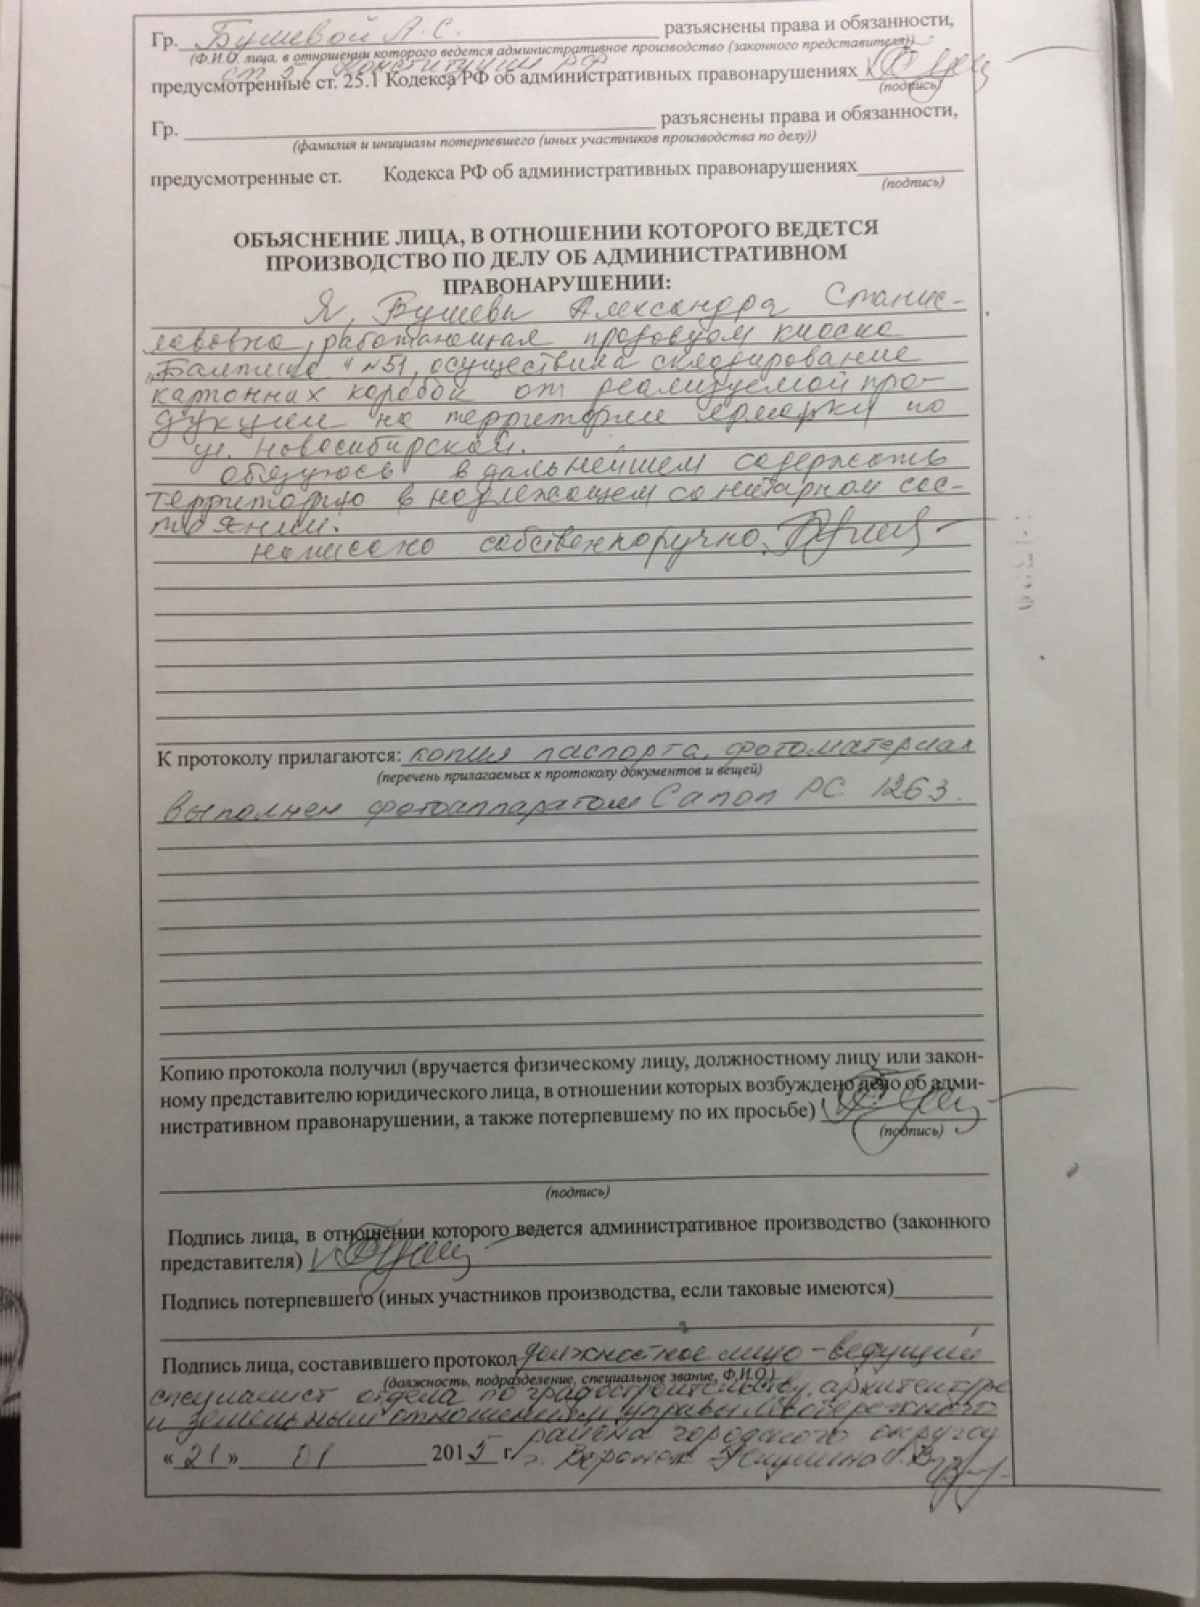 Гр. Бушевой А.С. разъяснены права и обязанности,
(Ф.И.О. лица, в отношении которого ведется административное производство (законного представителя))
ст 51 Конституции РФ
предусмотренные ст. 25.1 Кодекса РФ об административных правонарушениях
(подпись)
Гр. разъяснены права и обязанности,
(фамилия и инициалы потерпевшего (иных участников производства по делу))
предусмотренные ст. Кодекса РФ об административных правонарушениях
(подпись)
ОБЪЯСНЕНИЕ ЛИЦА, В ОТНОШЕНИИ КОТОРОГО ВЕДЕТСЯ
ПРОИЗВОДСТВО ПО ДЕЛУ ОБ АДМИНИСТРАТИВНОМ
ПРАВОНАРУШЕНИИ:
Я, Бушева Александра Станис-
лавовна, работающая продавцом киоска
"Балтика" №51, осуществила складирование
картонных коробок от реализуемой про-
дукции на территории ярмарки по
ул. Новосибирской.
обязуюсь в дальнейшем содержать
территорию в надлежащем санитарном сос-
тоянии.
написано собственноручно.
К протоколу прилагаются: копия паспорта, фотоматериал
(перечень прилагаемых к протоколу документов и вещей)
выполнен фотоаппаратом Canon PC 1263.
Копию протокола получил (вручается физическому лицу, должностному лицу или закон-
ному представителю юридического лица, в отношении которых возбуждено дело об адми-
нистративном правонарушении, а также потерпевшему по их просьбе)
(подпись)
(подпись)
Подпись лица, в отношении которого ведется административное производство (законного
представителя)
Подпись потерпевшего (иных участников производства, если таковые имеются)
Подпись лица, составившего протокол должностное лицо - ведущий
(должность, подразделение, специальное звание, Ф.И.О.)
специалист отдела по градостроительству, архитектуре
и земельным отношениям управы Левобережного
района городского округа
« 21 » 01 2015 г. г. Воронеж